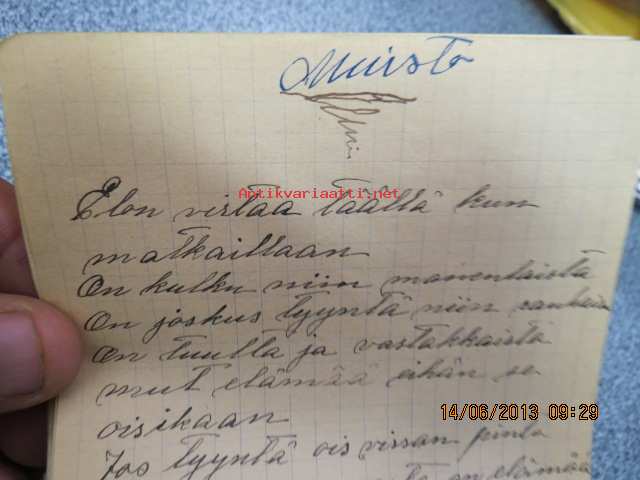 Muisto
Elon virtaa täällä kun
Antikvariaatti.net
matkaillaan
On kulku niin monenlaista
On joskus tyyntä niin rauhaisa
On tuulta ja vastakkaista
mut elämää eihän se
oisikaan
14/06/2013 09:29
Jos tyyntä ois virran pinta
on elämää